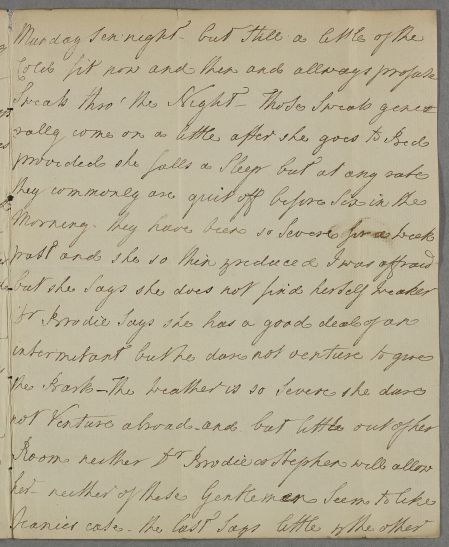 Munday Sen:night - but still a little of the
Cold fit now and then and allways profuse
Sweats thro' the Night - those Sweats gene
rally come on a little after she goes to Bed
provided she falls a Sleep but at any rate
they commonly are quit off before Six in the
Morning - they have been so severe for a week
past and she so thin reduced I was affraid
but she says she does not find herself weaker
Dr Brodie says she has a good deal of an
intermitant but he dare not venture to give
the Bark - The weather is so severe she dare
not Venture abroad - and but little out of her
Room neither Dr Brodie or Stephen will allow
her - neither of these Gentlemen Seem to like
Jeanies case - the last says little & the other